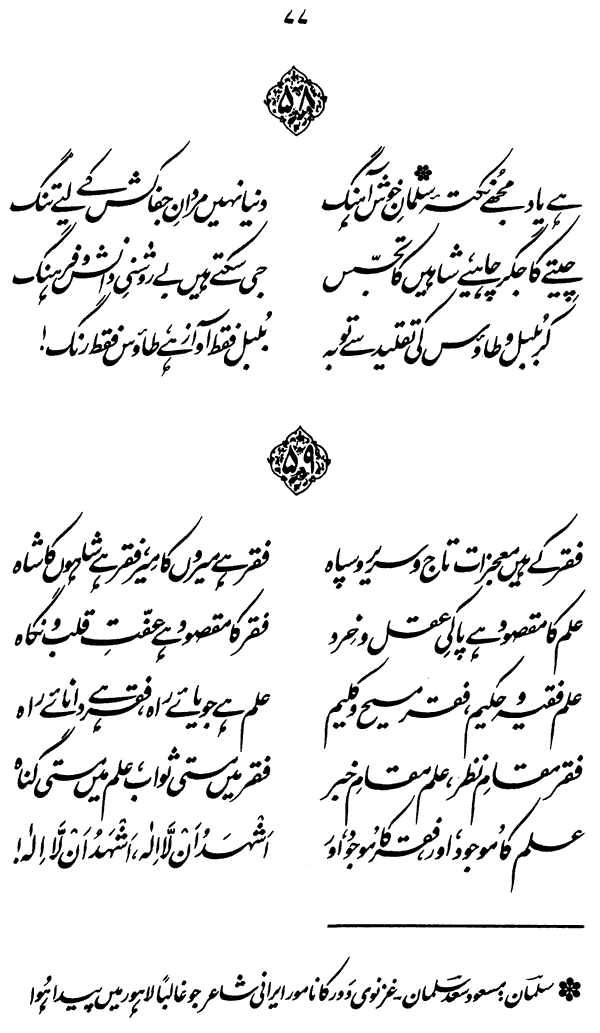 ۷۷
۵۸
ہے یاد مجھے نکتۂ سلمانِ❁ خوش آہنگ دنیا نہیں مردانِ جفاکش کے لیے تنگ
چیتے کا جگر چاہیے شاہیں کا تجسّس جی سکتے ہیں بے روشنیِ دانش و فرہنگ
کر بُلبل و طاؤس کی تقلید سے توبہ بُلبل فقط آواز ہے طاؤس فقط رنگ!
۵۹
فقر کے ہیں معجزات تاج و سریر و سپاہ فقر ہے میروں کا میر، فقر ہے شاہوں کا شاہ
علم کا مقصود ہے پاکیِ عقل و خرد فقر کا مقصود ہے عفّتِ قلب و نگاہ
علم فقیہ و حکیم، فقر مسیح و کلیم علم ہے جویائے راہ، فقر ہے دانائے راہ
فقر مقامِ نظر، علم مقامِ خبر فقر میں مستی ثواب، علم میں مستی گناہ
علم کا مُوجود، اور، فقر کا مُوجود، اور اَشْہَدُ اَنْ لَّا اِلٰہ، اَشْہَدُ اَنْ لَّا اِلٰہ!
❁ سلمان: مسعود سعد سلمان۔ غزنوی دَور کا نامور ایرانی شاعر جو غالباً لاہور میں پیدا ہُوا